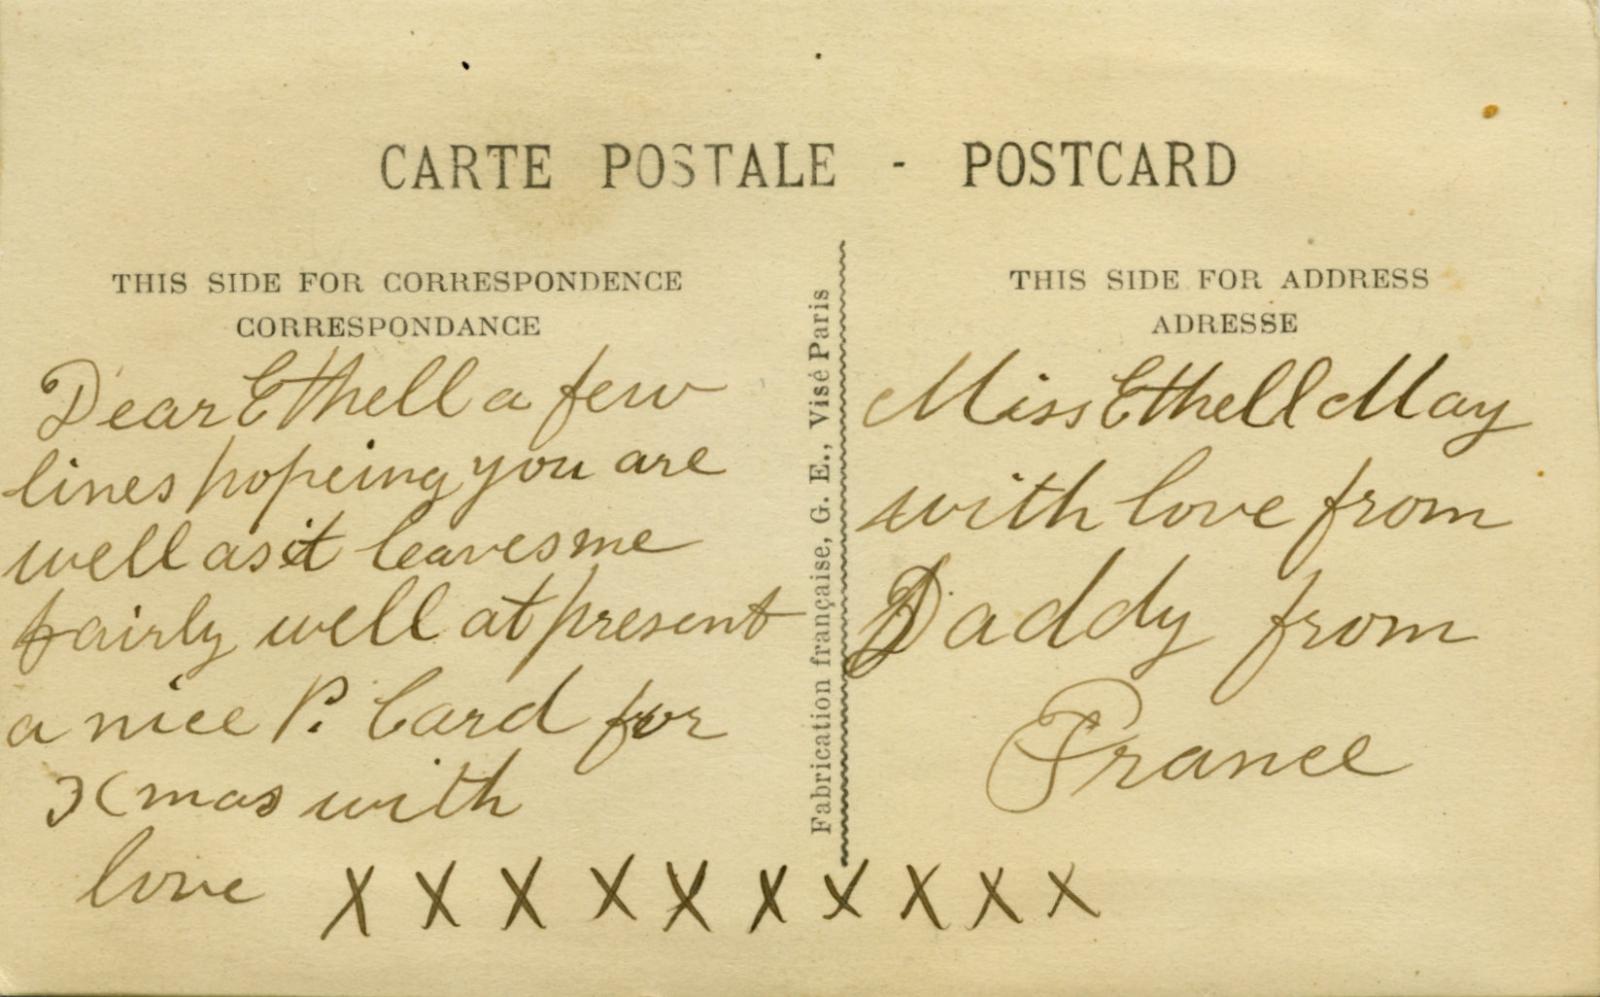 CARTE POSTALE - POSTCARD
THIS SIDE FOR CORRESPONDENCE
CORRESPONDANCE
Dear Ethell a few
lines hopeing you are
well as it leaves me
fairly well at present
a nice P. Card for
Xmas with
love X X X X X X X X X X
Fabrication française, G. E., Visé Paris
THIS SIDE FOR ADDRESS
ADRESSE
Miss Ethell May
with love from
Daddy from
France